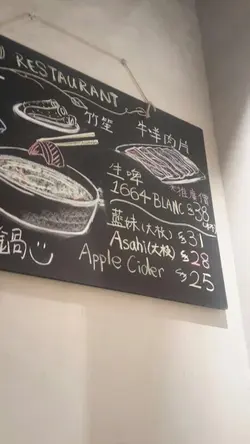 RESTAURANT
竹笙 牛羊肉片
生啤
1664 BLANC $38
藍妹(大枝) $31
Asahi(大枝) $28
Apple Cider $25
鍋